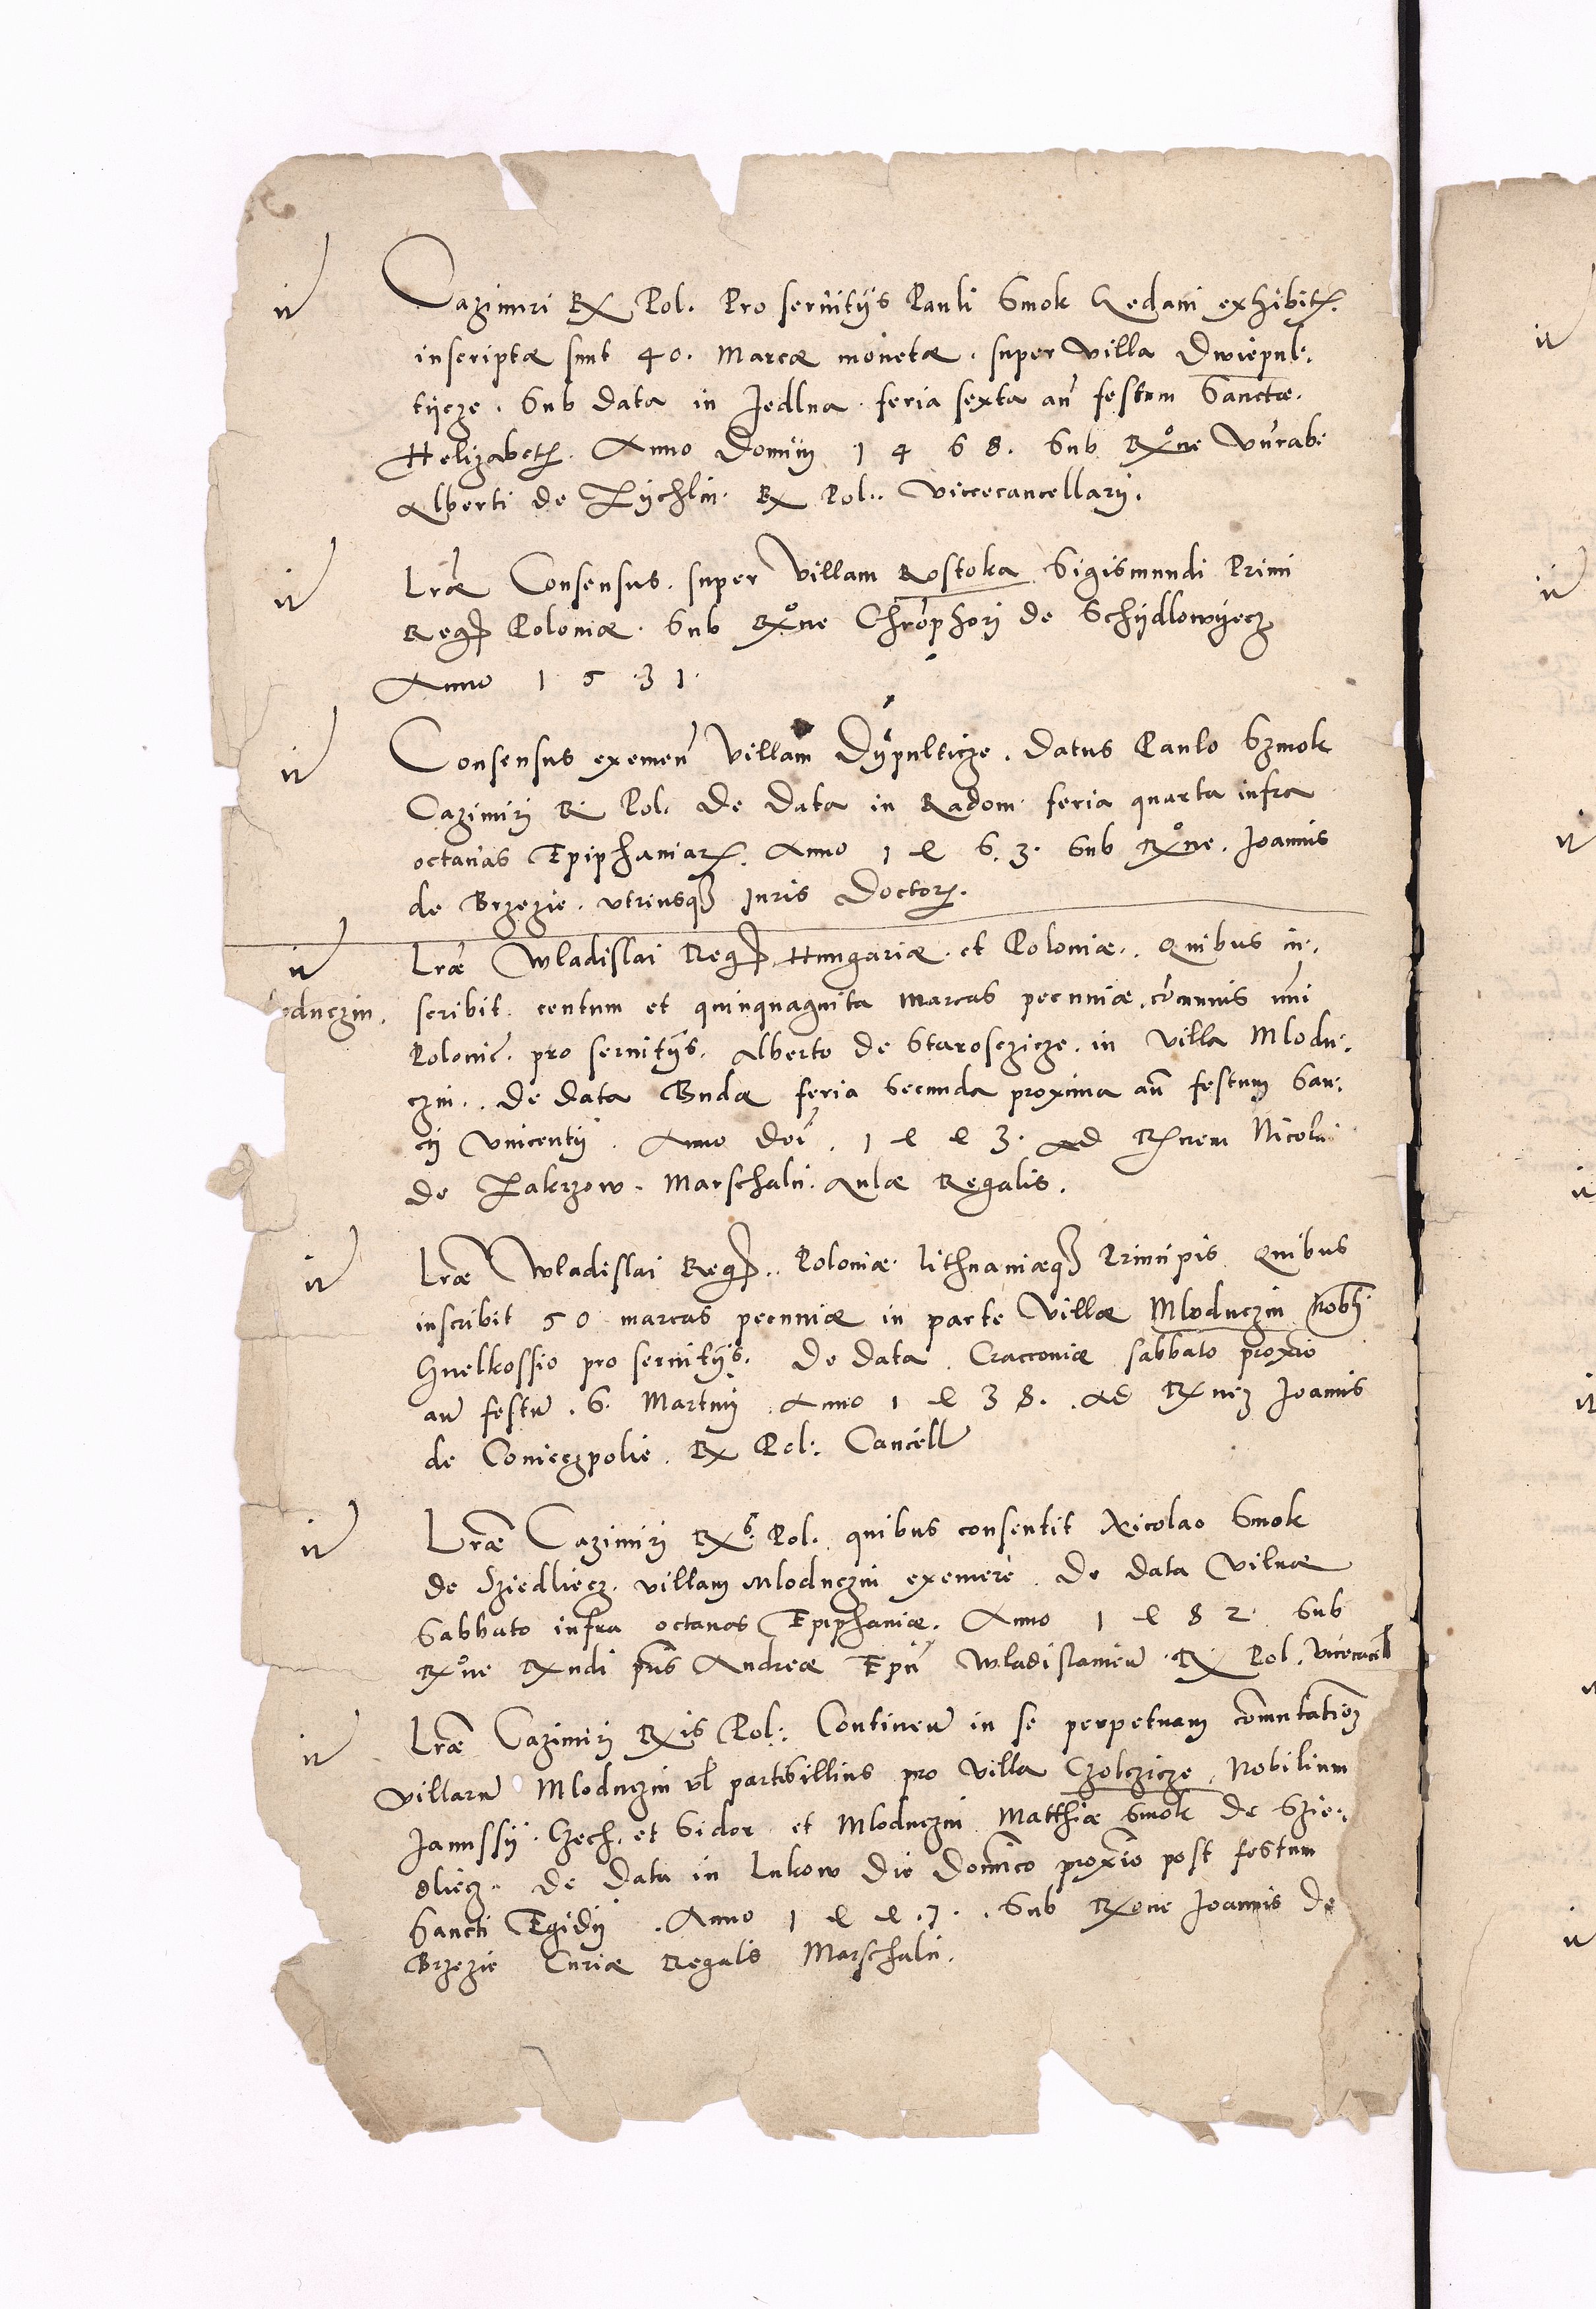 Cazimiri Rx Pol. Pro seruitijs Pauli Smok Redani exhibit.
inscriptæ sunt 40. Marcæ monetæ. super villa Dwiepul.
tijcze. Sub data in Jedlna feria sexta an̄ festum Sanctæ.
Helizabeth. Anno Domini 1468. Sub Rxo͞ne Vn̄rab.
Alberti de Zychlin. Rx Pol. Vicecancellarij.
it
Lr̄æ Consensus. super Villam Rostoka Sigismundi Primi
Reg. Poloniæ. Sub Rxo͞ne Chro͞phori de Schijdlowijecz
Anno 1531.
it
Consensus exemen̄ Villam Dijpulticze. datus Paulo Szmok
Cazimiri R. Pol. De data in Radom. feria quarta infra
octauas Epiphaniar. Anno 1463. Sub Rxo͞ne. Joannis
de Brzezie. vtriusq. Juris Doctor.
it
Lr̄æ Wladislai Reg. Hungariæ. et Poloniæ. Quibus in.
oduczin. scribit. centum et quinquaginta Marcas pecuniæ. co͞munis nu͞i
Polonic̄. pro seruitijs. Alberto de Starosczicze. in Villa Mlodu.
czin. De data Budæ feria Secunda proxima an̄ festum San.
cti Vincentij. Anno Doi͞. 1443. Ad Rx͞nem Nicolai
de Zakrzow. Marschalci. Aulæ Regalis.
it
Lr̄æ Wladislai Reg. Poloniæ. Lithuaniæq. Principis Quibus
inscribit 50 marcas pecuniæ in parte Villæ Mloduczin Nobli
Gnelkossio pro seruitijs. De data. Cracouiæ sabbato proxi͞o
an̄ festū. S. Martini Anno 1438. Ad Rxnez Joannis
de Conieczpolie. Rx Pol: Cancell
it
Lr̄æ Cazimiri Rxs. Pol. quibus consentit Nicolao Smok
de Sziedliecz. villam Mloduczin exemere. De data Vilnæ
Sabbato infra octauas Epiphaniæ. Anno 1482. Sub
Rxo͞ne Rxndi pn̄s Andreæ Epi͞ Wladislauien̄. Rx Pol. Vicecacell
it
Lr̄æ Cazimiri Rxis Pol: Continen̄ in se perpetuam com̄utatio͞ez
villarū Mloduczin vl̄ partis illius pro villa Czolczicze. Nobilium
Janussij. Czech. et Sidor. et Mloduczin Matthiæ Smok de Szie.
dliecz. De data in Lukow die Domi͞co proxi͞o post festum
Sancti Egidij. Anno 1447. Sub Rxone Joannis de
Brzezie Curiæ Regalis Marschalci.
it